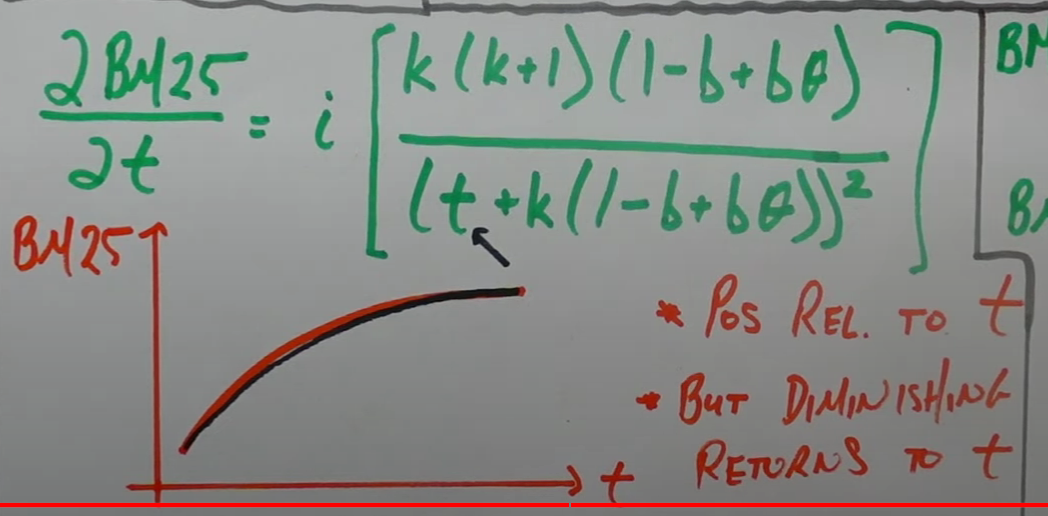 ∂BM25/∂t = i [ k(k+1)(1-b+bθ) / (t+k(1-b+bθ))² ]
BM
BM25
BM
* POS REL. TO t
* BUT DIMINISHING
RETURNS TO t
t